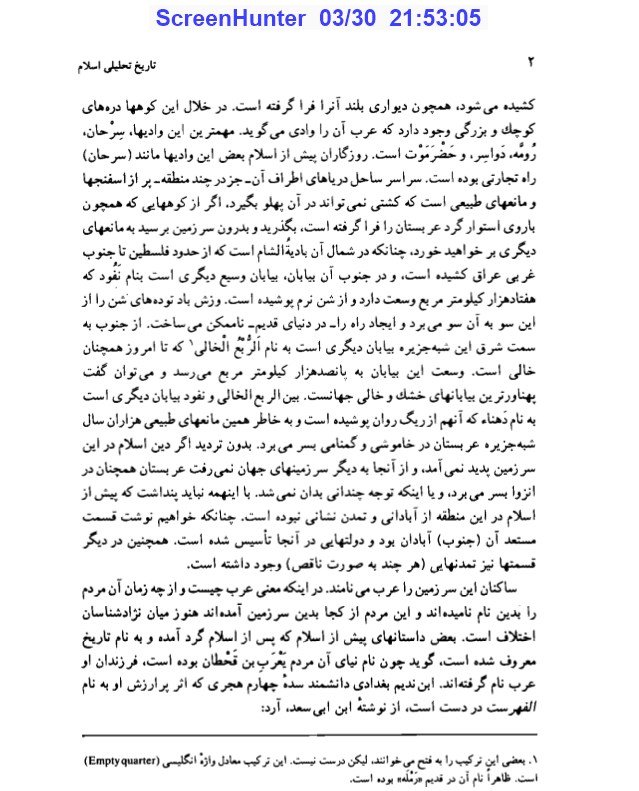 ScreenHunter 03/30 21:53:05
۲
تاریخ تحلیلی اسلام
کشیده می‌شود، همچون دیواری بلند آنرا فرا گرفته است. در خلال این کوهها دره‌های
کوچك و بزرگی وجود دارد که عرب آن را وادی می‌گوید. مهمترین این وادیها، سِرْحان،
رُومَّه، دَواسِر، و حَضْرَمَوْت است. روزگاران پیش از اسلام بعض این وادیها مانند (سرحان)
راه تجارتی بوده است. سراسر ساحل دریاهای اطراف آن ـ جز در چند منطقه ـ پر از اسفنجها
و مانعهای طبیعی است که کشتی نمی‌تواند در آن پهلو بگیرد، اگر از کوههایی که همچون
باروی استوار گرد عربستان را فرا گرفته است، بگذرید و بدرون سرزمین برسید به مانعهای
دیگری بر خواهید خورد، چنانکه در شمال آن بادیةُ‌الشام است که از حدود فلسطین تا جنوب
غربی عراق کشیده است، و در جنوب آن بیابان، بیابان وسیع دیگری است بنام نَفُود که
هفتادهزار کیلومتر مربع وسعت دارد و از شن نرم پوشیده است. وزش باد توده‌های شن را از
این سو به آن سو می‌برد و ایجاد راه را ـ در دنیای قدیم ـ ناممکن می‌ساخت. از جنوب به
سمت شرق این شبه‌جزیره بیابان دیگری است به نام اَلرُّبْعُ الْخالی۱ که تا امروز همچنان
خالی است. وسعت این بیابان به پانصدهزار کیلومتر مربع می‌رسد و می‌توان گفت
پهناورترین بیابانهای خشك و خالی جهانست. بین الربع الخالی و نفود بیابان دیگری است
به نام دَهناء که آنهم از ریگ روان پوشیده است و به خاطر همین مانعهای طبیعی هزاران سال
شبه‌جزیره عربستان در خاموشی و گمنامی بسر می‌برد. بدون تردید اگر دین اسلام در این
سرزمین پدید نمی‌آمد، و از آنجا به دیگر سرزمینهای جهان نمی‌رفت عربستان همچنان در
انزوا بسر می‌برد، و یا اینکه توجه چندانی بدان نمی‌شد. با اینهمه نباید پنداشت که پیش از
اسلام در این منطقه از آبادانی و تمدن نشانی نبوده است. چنانکه خواهیم نوشت قسمت
مستعد آن (جنوب) آبادان بود و دولتهایی در آنجا تأسیس شده است. همچنین در دیگر
قسمتها نیز تمدنهایی (هر چند به صورت ناقص) وجود داشته است.
ساکنان این سرزمین را عرب می‌نامند. در اینکه معنی عرب چیست و از چه زمان آن مردم
را بدین نام نامیده‌اند و این مردم از کجا بدین سرزمین آمده‌اند هنوز میان نژادشناسان
اختلاف است. بعض داستانهای پیش از اسلام که پس از اسلام گرد آمده و به نام تاریخ
معروف شده است، گوید چون نام نیای آن مردم یَعْرَبِ بن قَحْطان بوده است، فرزندان او
عرب نام گرفته‌اند. ابن‌ندیم بغدادی دانشمند سدهٔ چهارم هجری که اثر پرارزش او به نام
الفهرست در دست است، از نوشتهٔ ابن ابی‌سعد، آرد:
۱. بعضی این ترکیب را به فتح می‌خوانند، لیکن درست نیست. این ترکیب معادل واژهٔ انگلیسی (Empty quarter)
است. ظاهراً نام آن در قدیم «رَمْلَه» بوده است.